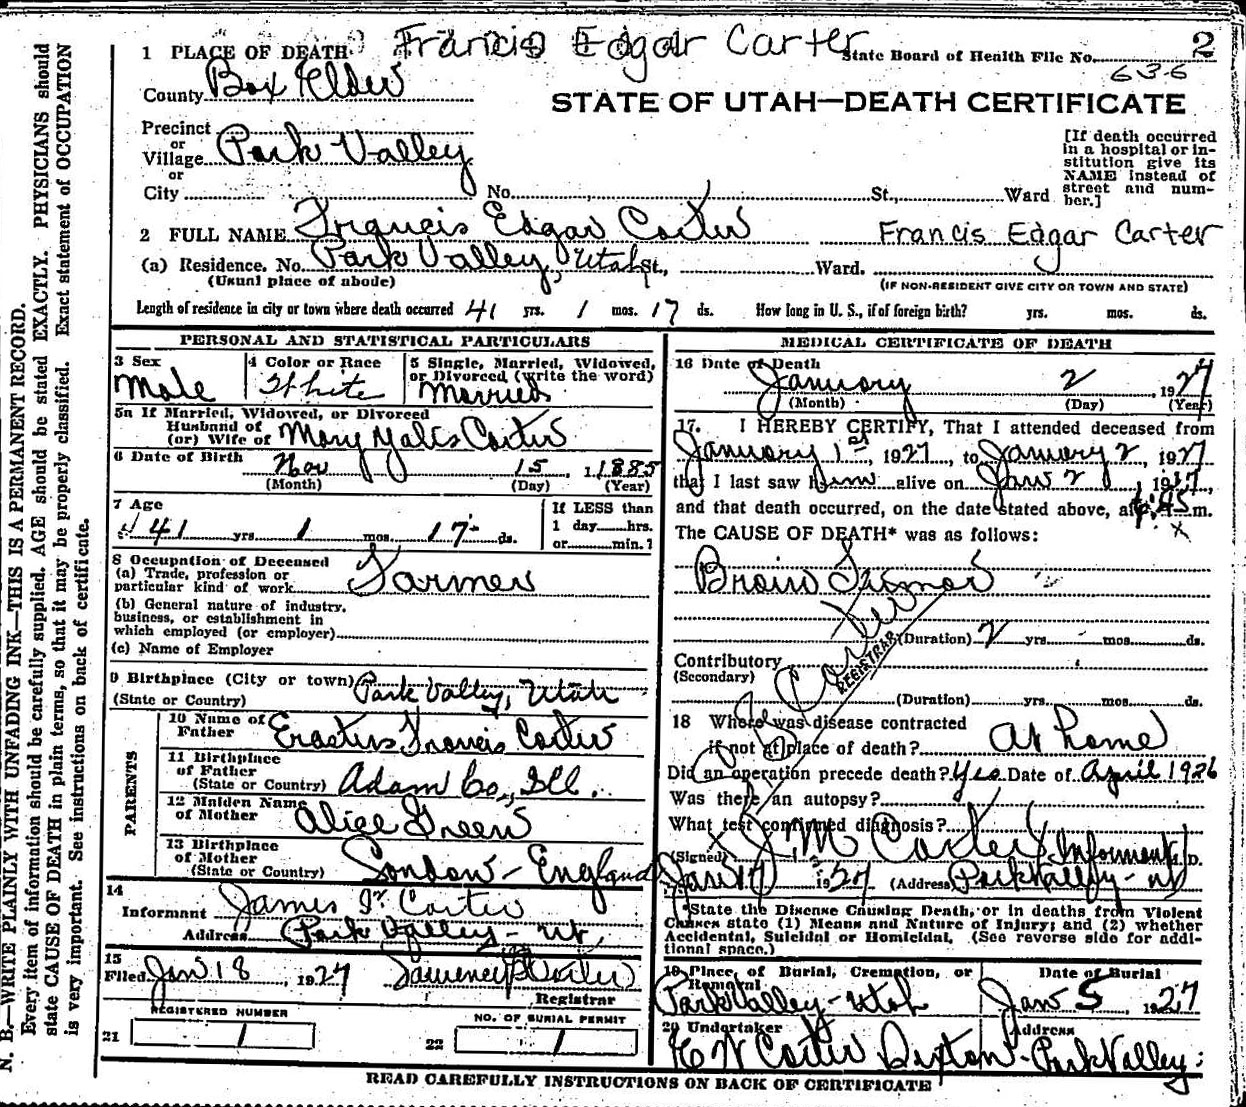 Francis Edgar Carter
1 PLACE OF DEATH
State Board of Health File No. 2
636
County Box Elder
STATE OF UTAH—DEATH CERTIFICATE
Precinct
or
Village Park Valley
or
City No. St., Ward
[If death occurred
in a hospital or in-
stitution give its
NAME instead of
street and num-
ber.]
2 FULL NAME Francis Edgar Carter Francis Edgar Carter
(a) Residence. No. Park Valley, Utah St., Ward.
(Usual place of abode) (IF NON-RESIDENT GIVE CITY OR TOWN AND STATE)
Length of residence in city or town where death occurred 41 yrs. 1 mos. 17 ds. How long in U. S., if of foreign birth? yrs. mos. ds.
PERSONAL AND STATISTICAL PARTICULARS
3 Sex
Male
4 Color or Race
White
5 Single, Married, Widowed,
or Divorced (write the word)
Married
5a If Married, Widowed, or Divorced
Husband of
(or) Wife of Mary Yates Carter
6 Date of Birth
Nov 15 1885
(Month) (Day) (Year)
7 Age
41 yrs. 1 mos. 17 ds.
If LESS than
1 day hrs.
or min.?
8 Occupation of Deceased
(a) Trade, profession or
particular kind of work Farmer
(b) General nature of industry,
business, or establishment in
which employed (or employer)
(c) Name of Employer
9 Birthplace (City or town) Park Valley, Utah
(State or Country)
PARENTS
10 Name of
Father Erastus Francis Carter
11 Birthplace
of Father
(State or Country) Adam Co., Ill.
12 Maiden Name
of Mother Alice Green
13 Birthplace
of Mother
(State or Country) London - England
14
Informant James M Carter
Address Park Valley - Ut.
15
Filed Jan 18, 1927 Carter
Registrar
REGISTERED NUMBER
21 1
NO. OF BURIAL PERMIT
22 1
MEDICAL CERTIFICATE OF DEATH
16 Date of Death
January 2 1927
(Month) (Day) (Year)
17. I HEREBY CERTIFY, That I attended deceased from
January 1st, 1927, to January 2, 1927
that I last saw him alive on Jan 2, 1927,
and that death occurred, on the date stated above, at 4:45 m.
The CAUSE OF DEATH* was as follows:
Brain Tumor
(Duration) 2 yrs. mos. ds.
Contributory
(Secondary)
(Duration) yrs. mos. ds.
Carter
REGISTRAR
18 Where was disease contracted
if not at place of death? At home
Did an operation precede death? Yes Date of April 1926
Was there an autopsy?
What test confirmed diagnosis?
(Signed) J. M Carter (Informant) M.D.
Jan 17 1927 (Address) Park Valley - Ut
*State the Disease Causing Death, or in deaths from Violent
Causes state (1) Means and Nature of Injury; and (2) whether
Accidental, Suicidal or Homicidal. (See reverse side for addi-
tional space.)
19 Place of Burial, Cremation, or
Removal
Park Valley - Utah
Date of Burial
Jan 5 1927
20 Undertaker Address
Carter Sexton - Park Valley
READ CAREFULLY INSTRUCTIONS ON BACK OF CERTIFICATE
N. B.—WRITE PLAINLY WITH UNFADING INK—THIS IS A PERMANENT RECORD.
Every item of information should be carefully supplied. AGE should be stated EXACTLY. PHYSICIANS should
state CAUSE OF DEATH in plain terms, so that it may be properly classified. Exact statement of OCCUPATION
is very important. See instructions on back of certificate.